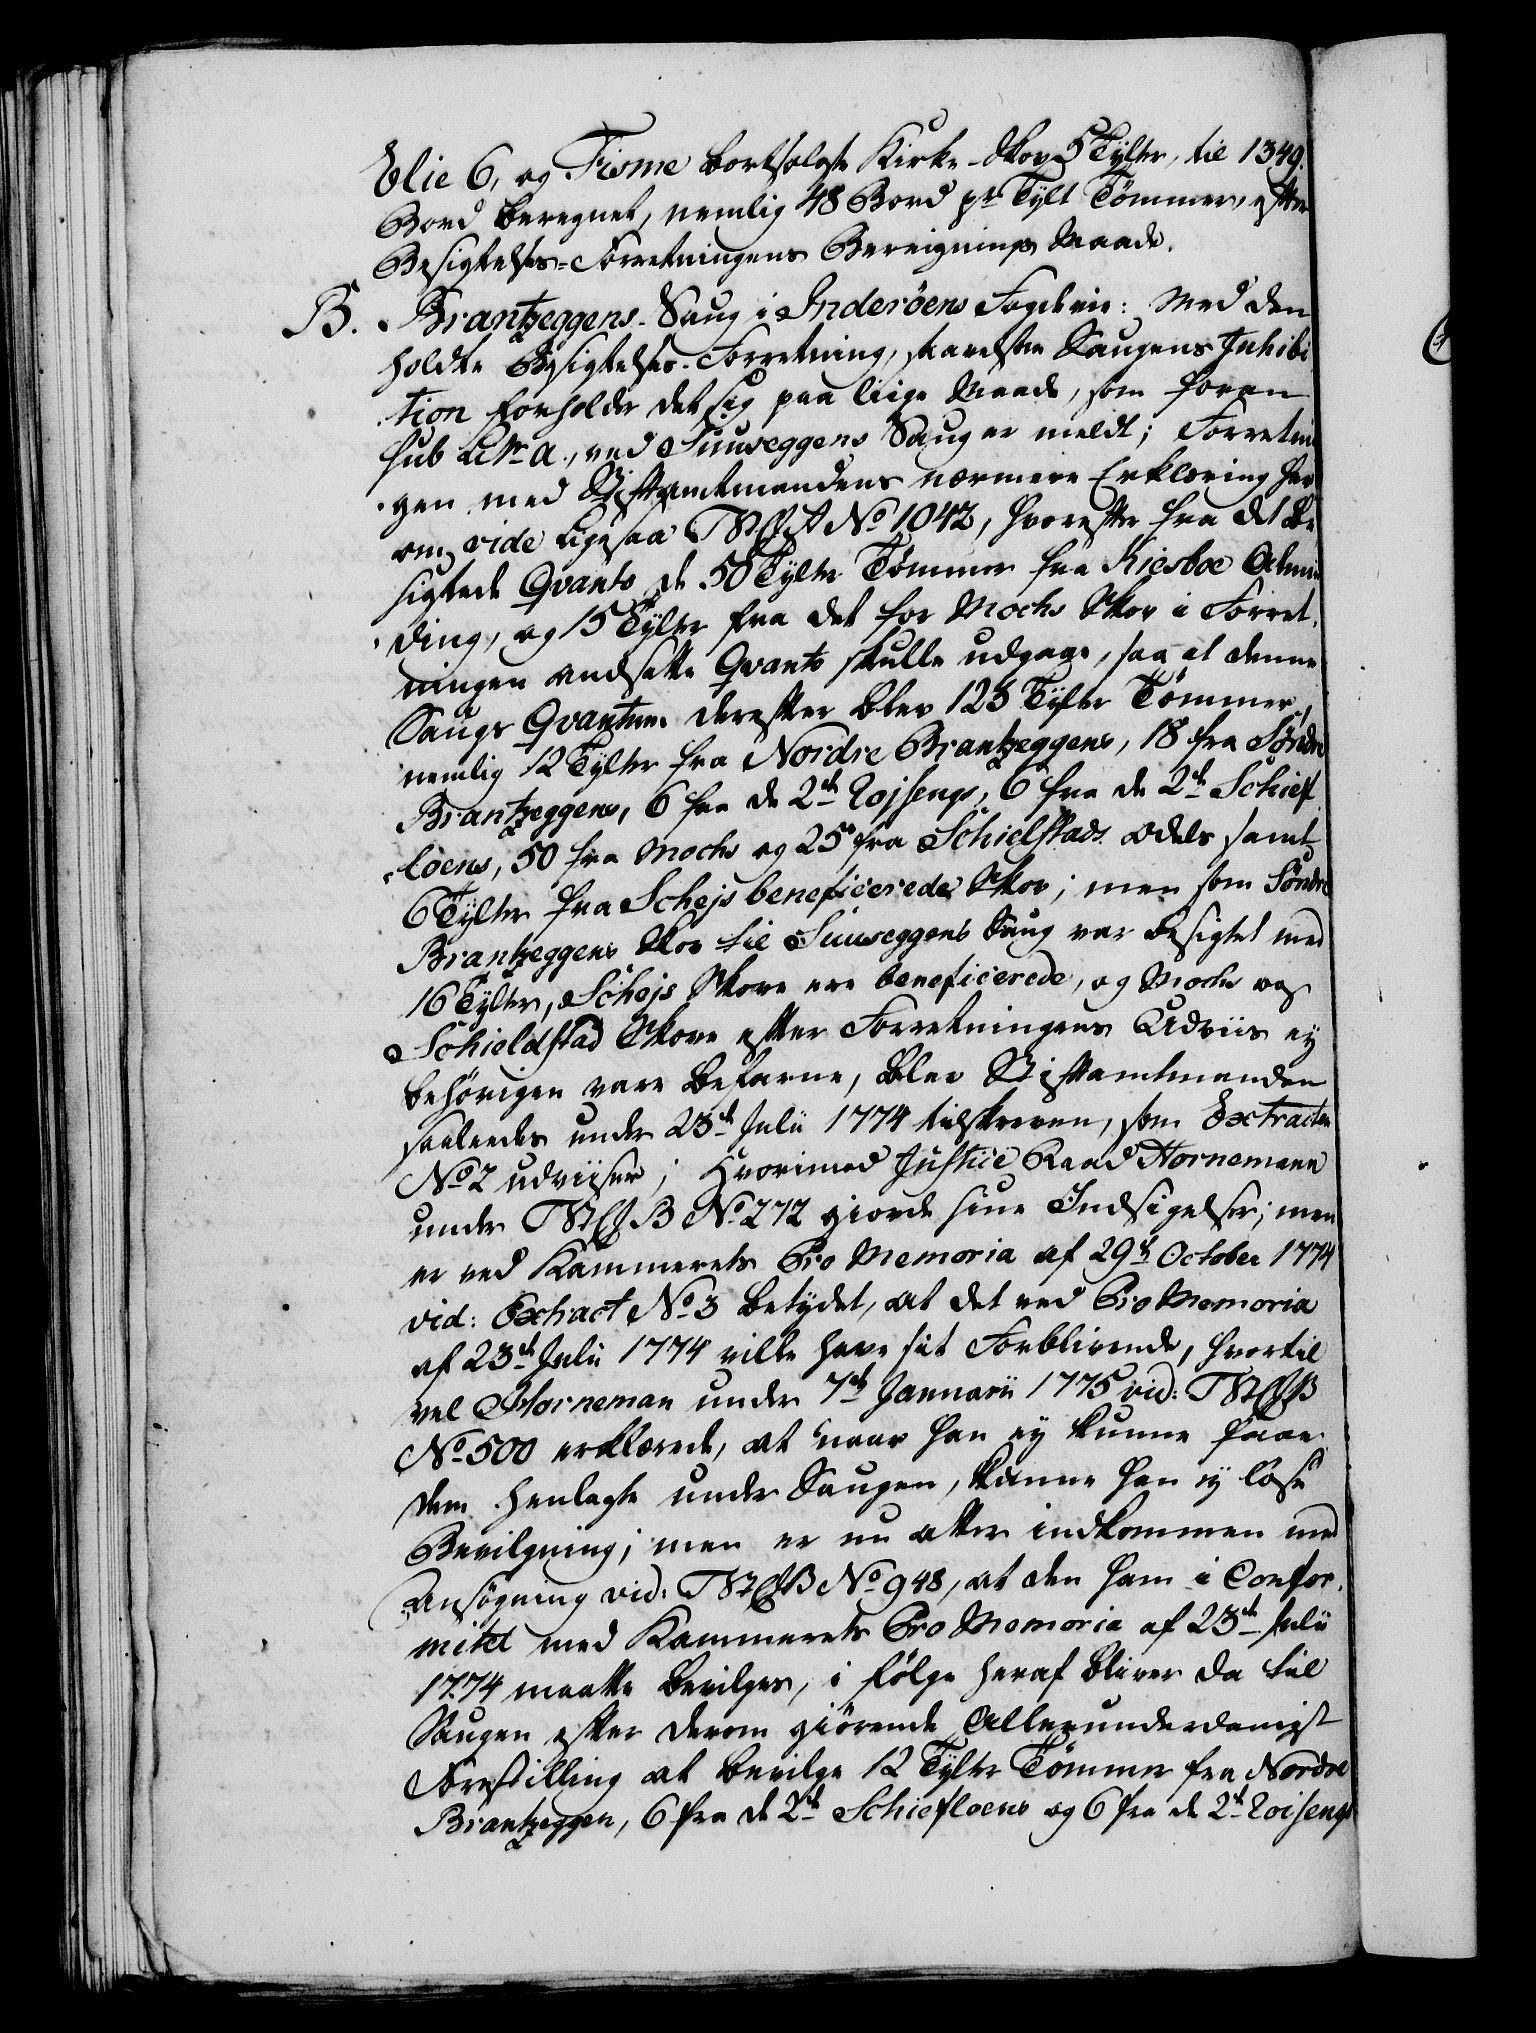 Elie 6, og Fisme bortsolgte Kirke-Skov 5 Tylter, til 1349.
Bord beregnet, nemlig 48 Bord pr Tylt Tømmer, efter
Besigtelses-Forretningens Beregnings Maade.
B. Brantzeggens-Saug i Inderøens Fogderie: Med den
holdte Besigtelses-Forretning, Saugens Inhibi
tion forholder det sig paa liige Maade, som foran
sub Litr A., ved Suuseggens Saug er meldt; Forretnin
gen med Stiftamtmandens nærmere Erklæring her
om, vide ligesaa No 1042, hvorefter fra det be
sigtede Qvanto de 50 Tylter Tømmer fra Kiesboe Almin
ding, og 15 Tylter fra det for Mochs Skov i Forret
ningen ansatte Qvanto skulle udgaae, saa at denne
Saugs Qvantum derefter blev 123 Tylter Tømmer,
nemlig 12 Tylter fra Nordre Brantzeggens, 18 fra Søndre
Brantzeggens, 6 fra de 2de Rojsengs, 6 fra de 2de Schief
loens, 50 fra Mochs og 25 fra Schielstads odels samt
6 Tylter fra Schejs beneficerede Skov; men som Søndre
Brantzeggens Skov til Suuseggens Saug var besigtet med
16 Tylter, Schejs Skove ere beneficerede, og Mochs og
Schieldstad Skove efter Forretningens Udviis ej
behørigen vare befarne, blev Stiftamtmanden
saaledes under 23de Julii 1774 tilskreven, som Extracten
No 2 udviiser; Hvorimod Justice Raad Hornemann
under B No 272 giorde sine Indsigelser; men
er ved Kammerets Pro Memoria af 29de October 1774
vid: Extract No 3 betydet, at det ved Pro Memoria
af 23de Julii 1774 ville have sit Forblivende, hvortil
vel Horneman under 7de Januarii 1775 vid:
No 500 erklærede, at naar han ej kunne faae
dem henlagte under Saugen, kunne han ej løse
Bevilgning; men er nu atter indkommen med
Ansøgning vid: No 948, at den ham i Confor
mitet med Kammerets Pro Memoria af 23de Julii
1774 maatte bevilges, i følge heraf bliver da til
Saugen efter derom giörende Allerunderdanigst
Forestilling at bevilge 12 Tylter Tømmer fra Nordre
Brantzeggen, 6 fra de 2de Schiefloens og 6 fra de 2de Roisengs